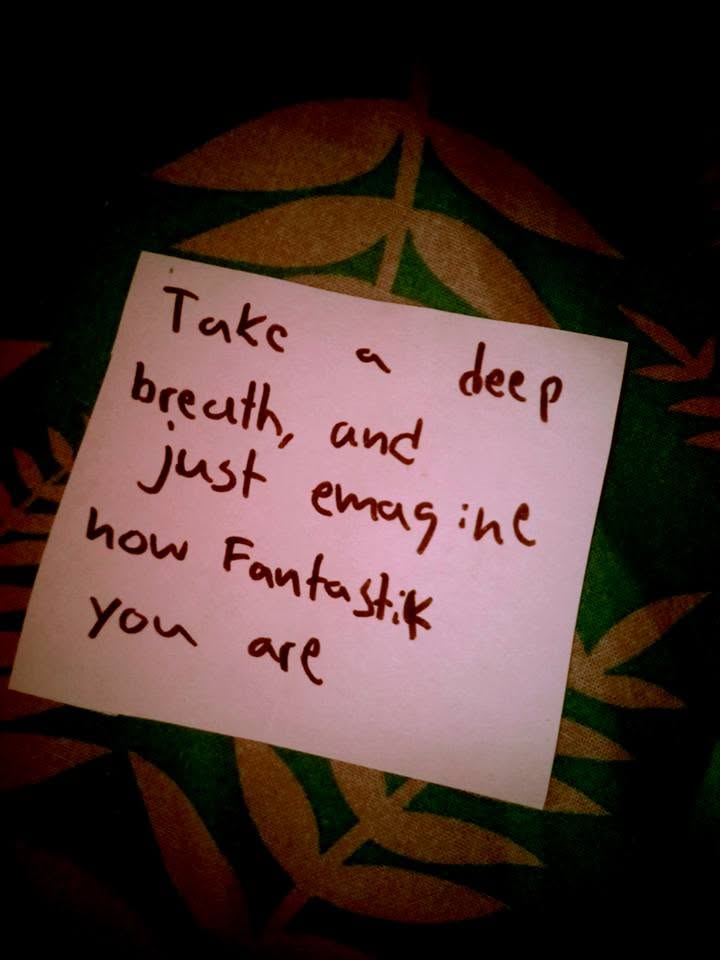 Take a deep
breath, and
just emagine
how Fantastik
you are